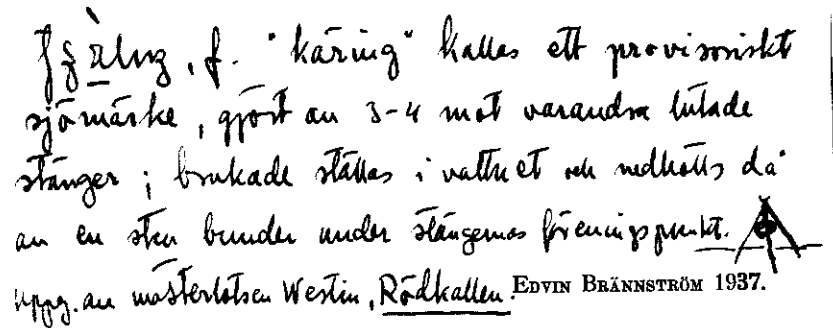 f. "käring" kallas ett provisoriskt
sjömärke, gjort av 3-4 mot varandra lutade
stänger; brukade ställas i vattnet och nedhölls då
av en sten bunden under stängernas föreningspunkt.
Uppg. av mästerlotsen Westin, Rödkallen. EDVIN BRÄNNSTRÖM 1937.